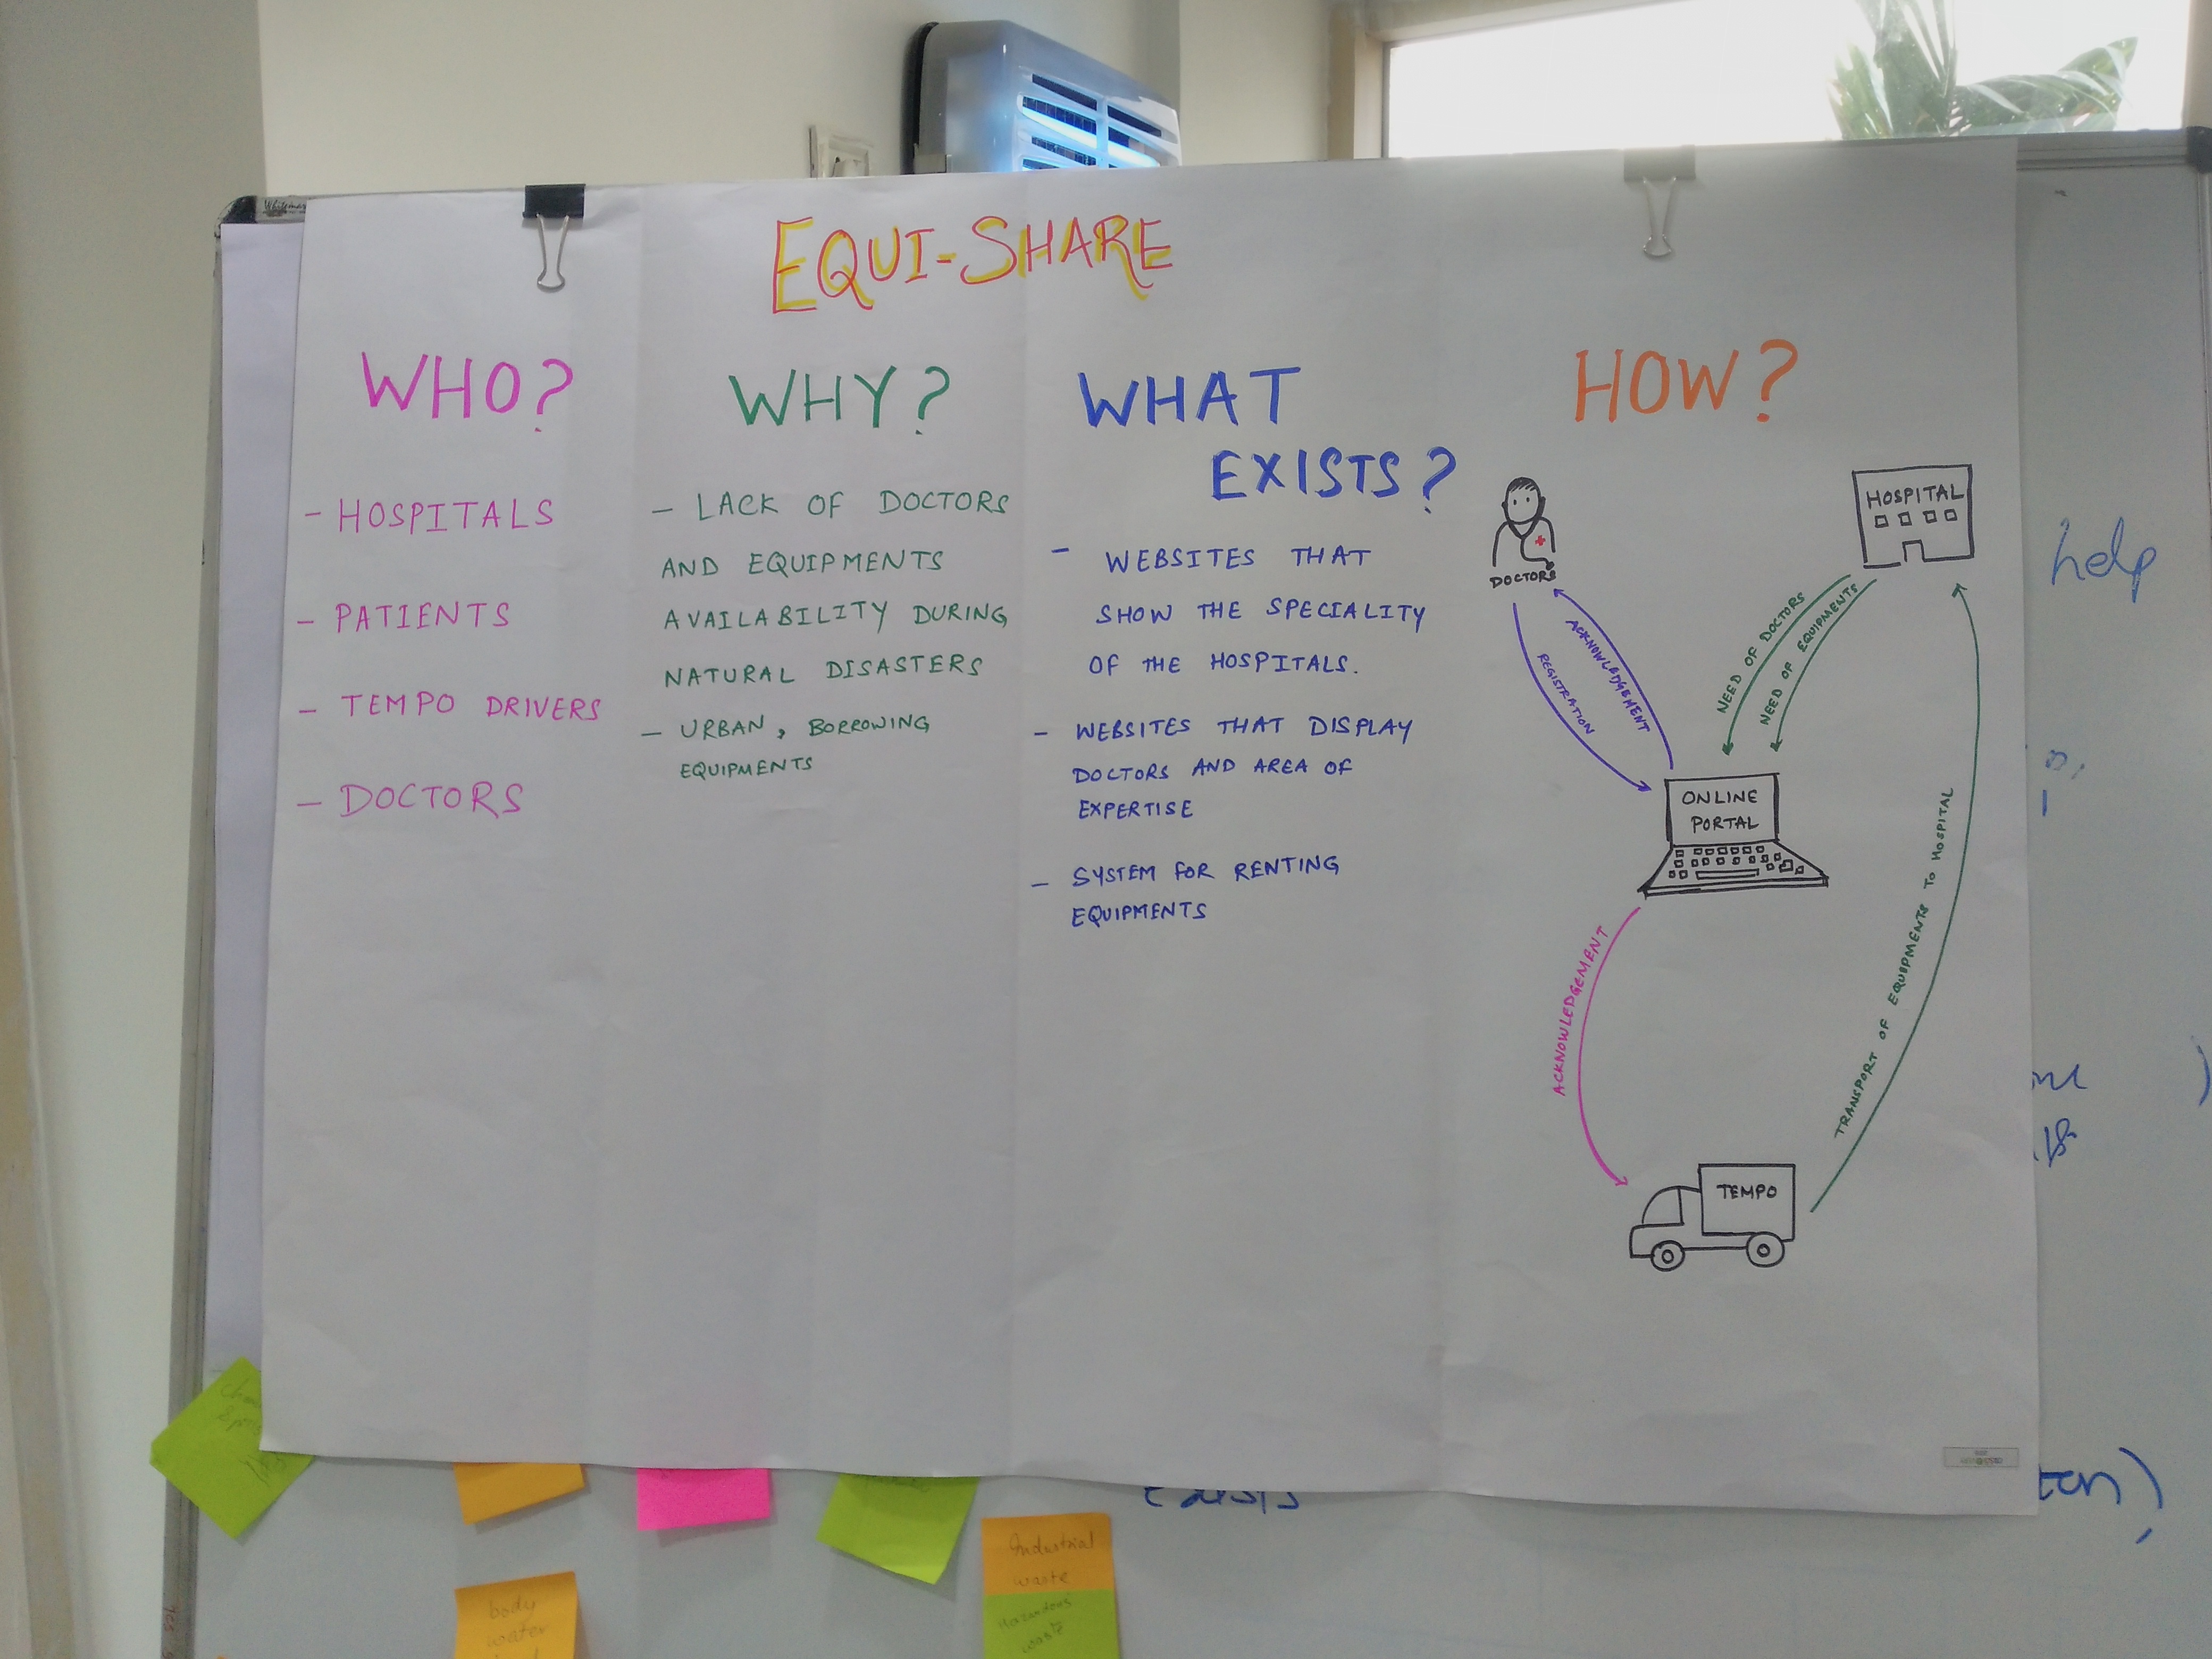 EQUI-SHARE
WHO?
- HOSPITALS
- PATIENTS
- TEMPO DRIVERS
- DOCTORS
WHY?
- LACK OF DOCTORS
AND EQUIPMENTS
AVAILABILITY DURING
NATURAL DISASTERS
- URBAN, BORROWING
EQUIPMENTS
WHAT
EXISTS?
- WEBSITES THAT
SHOW THE SPECIALITY
OF THE HOSPITALS.
- WEBSITES THAT DISPLAY
DOCTORS AND AREA OF
EXPERTISE
- SYSTEM FOR RENTING
EQUIPMENTS
HOW?
DOCTORS
HOSPITAL
REGISTRATION
ACKNOWLEDGEMENT
NEED OF DOCTORS
NEED OF EQUIPMENTS
ONLINE
PORTAL
ACKNOWLEDGEMENT
TRANSPORT OF EQUIPMENTS TO HOSPITAL
TEMPO
help
Industrial
waste
body
water